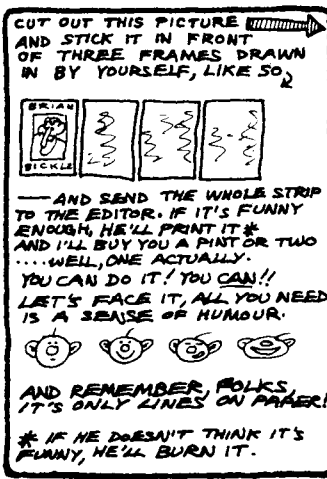 CUT OUT THIS PICTURE
AND STICK IT IN FRONT
OF THREE FRAMES DRAWN
IN BY YOURSELF, LIKE SO
BRIAN
BICKLE
— AND SEND THE WHOLE STRIP
TO THE EDITOR. IF IT'S FUNNY
ENOUGH, HE'LL PRINT IT *
AND I'LL BUY YOU A PINT OR TWO
....WELL, ONE ACTUALLY.
YOU CAN DO IT! YOU CAN!!
LET'S FACE IT, ALL YOU NEED
IS A SENSE OF HUMOUR.
AND REMEMBER, FOLKS,
IT'S ONLY LINES ON PAPER!
* IF HE DOESN'T THINK IT'S
FUNNY, HE'LL BURN IT.